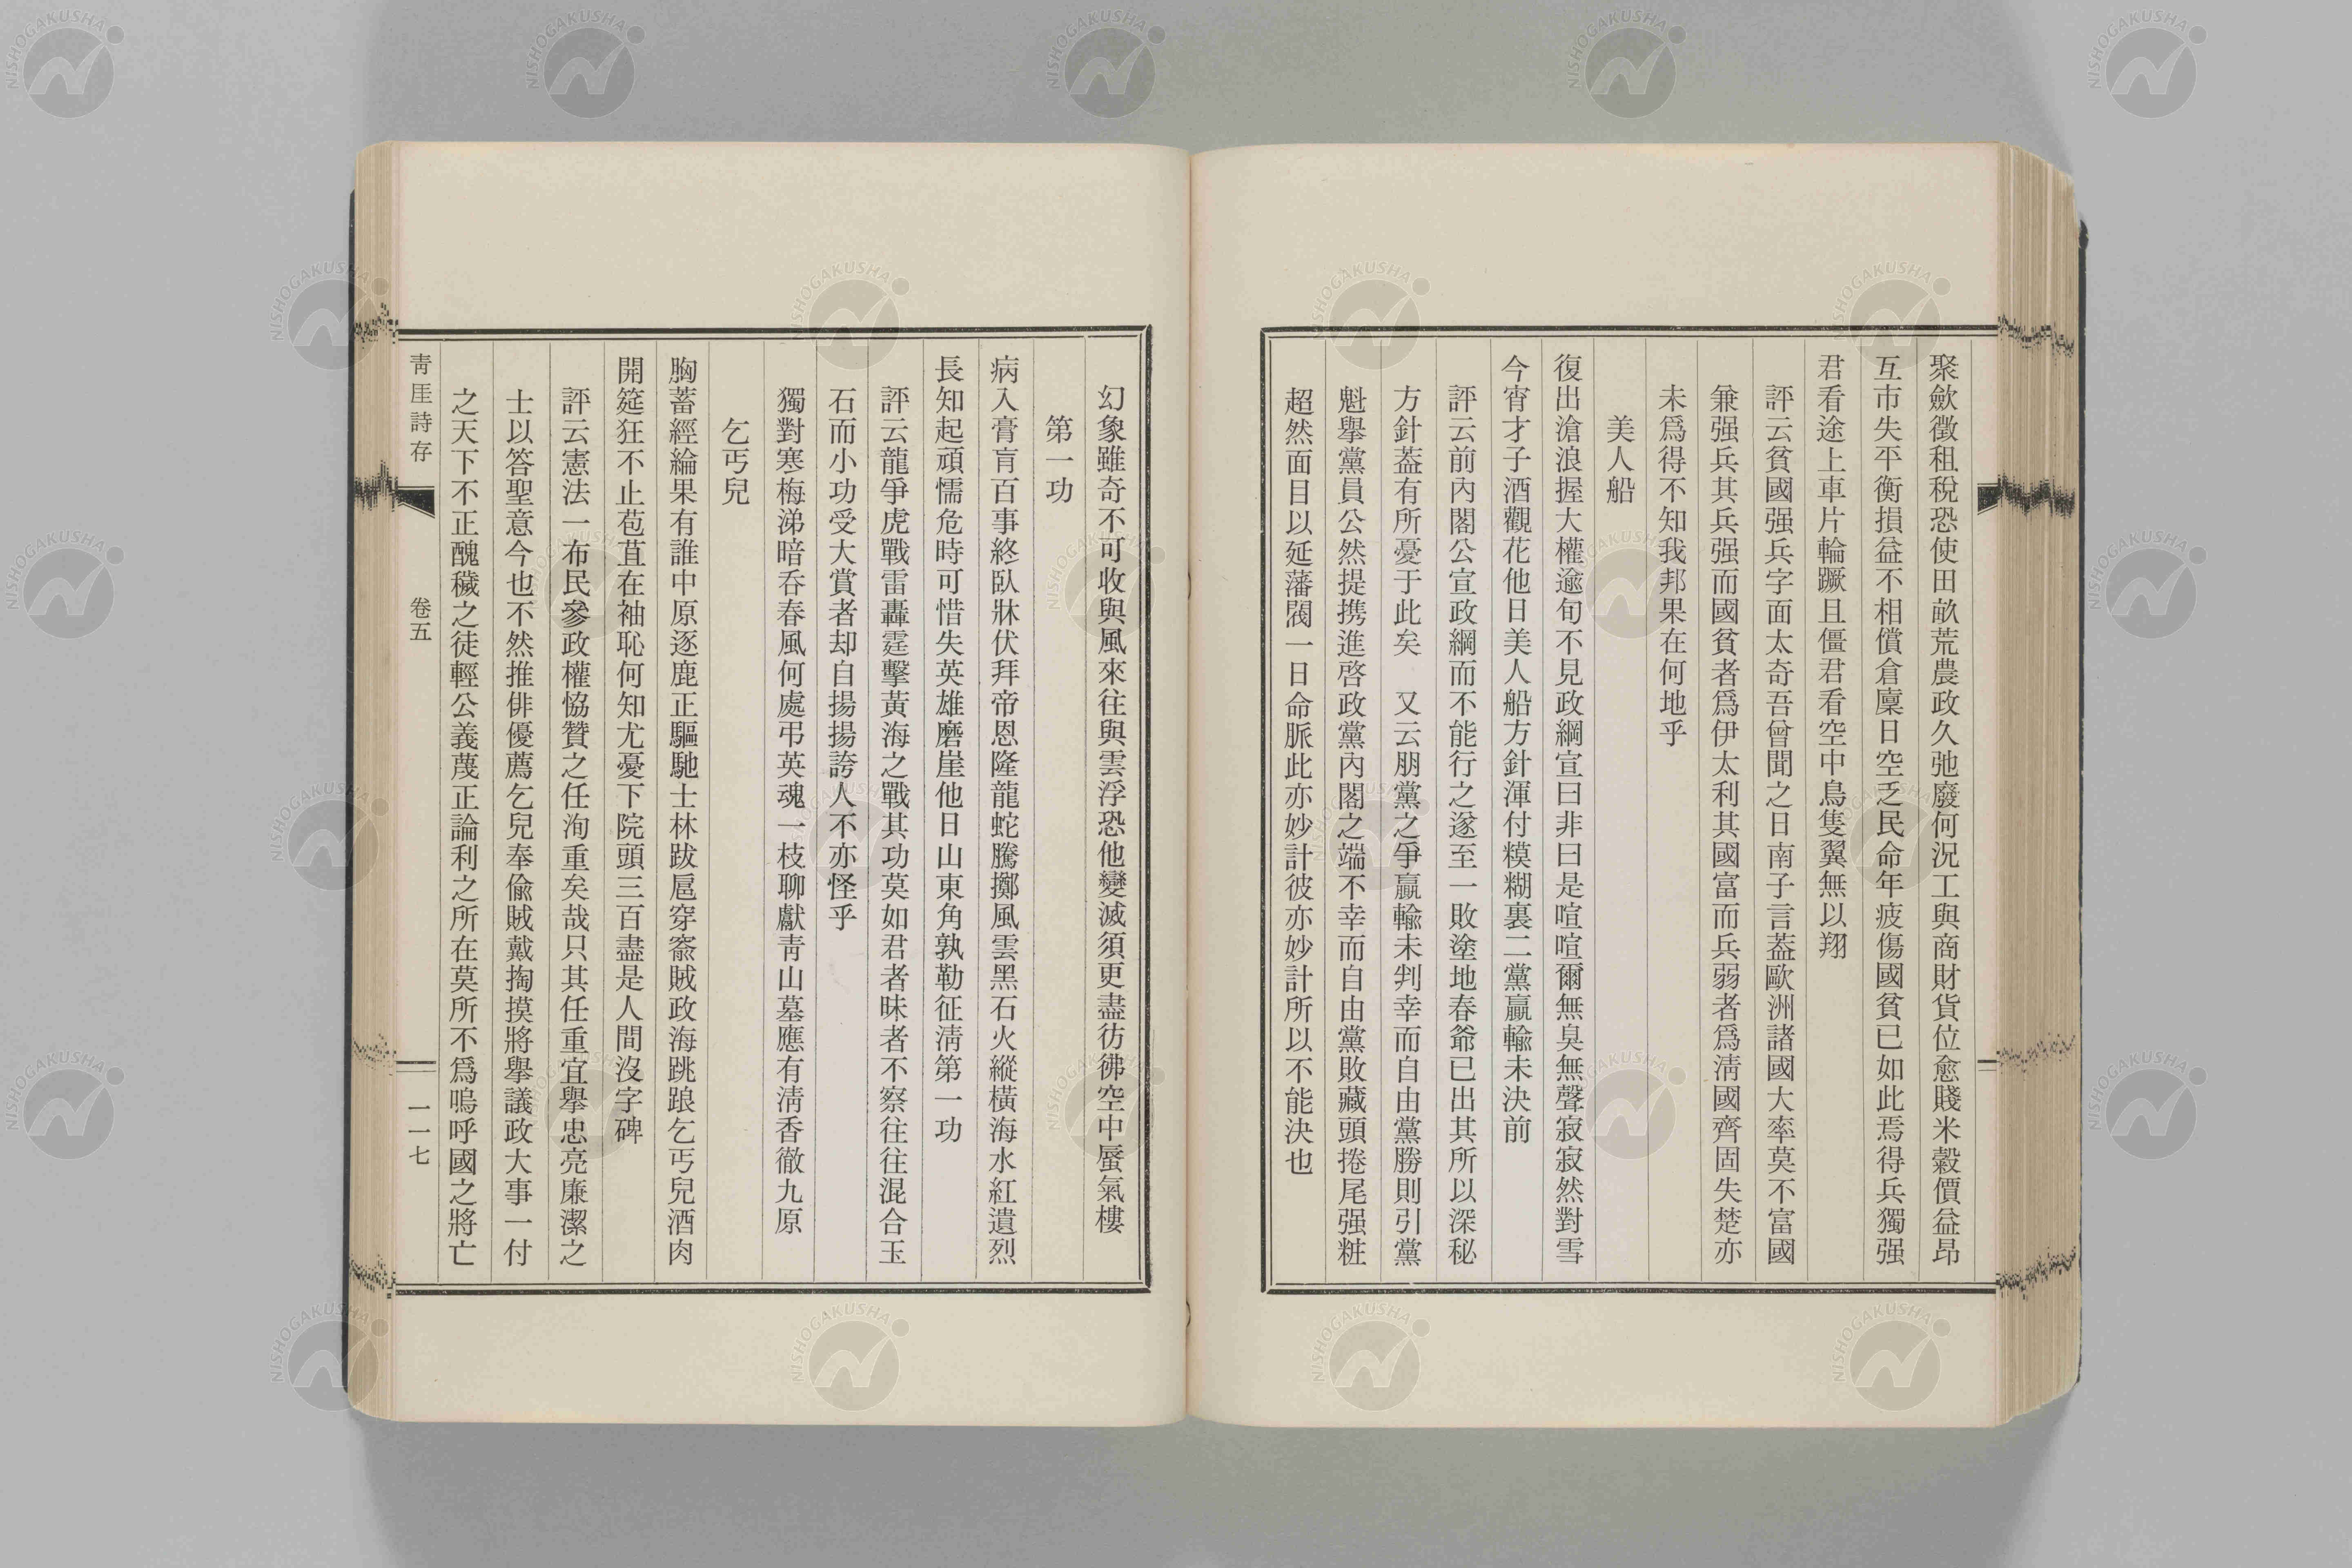 聚斂徵租稅恐使田畝荒農政久弛廢何況工與商財貨位愈賤米穀價益昂
互市失平衡損益不相償倉廩日空乏民命年疲傷國貧已如此焉得兵獨强
君看途上車片輪蹶且僵君看空中鳥隻翼無以翔
評云貧國强兵字面太奇吾曾聞之日南子言蓋歐洲諸國大率莫不富國
兼强兵其兵强而國貧者爲伊太利其國富而兵弱者爲淸國齊固失楚亦
未爲得不知我邦果在何地乎
美人船
復出滄浪握大權逾旬不見政綱宣曰非曰是喧喧爾無臭無聲寂寂然對雪
今宵才子酒觀花他日美人船方針渾付糢糊裏二黨贏輸未決前
評云前內閣公宣政綱而不能行之遂至一敗塗地春爺已出其所以深秘
方針葢有所憂于此矣　又云朋黨之爭贏輸未判幸而自由黨勝則引黨
魁擧黨員公然提携進啓政黨內閣之端不幸而自由黨敗藏頭捲尾强粧
超然面目以延藩閥一日命脈此亦妙計彼亦妙計所以不能決也
幻象雖奇不可收與風來往與雲浮恐他變滅須更盡彷彿空中蜃氣樓
第一功
病入膏肓百事終臥牀伏拜帝恩隆龍蛇騰擲風雲黑石火縱橫海水紅遺烈
長知起頑懦危時可惜失英雄磨崖他日山東角孰勒征淸第一功
評云龍爭虎戰雷轟霆擊黃海之戰其功莫如君者昧者不察往往混合玉
石而小功受大賞者却自揚揚誇人不亦怪乎
獨對寒梅涕暗呑春風何處弔英魂一枝聊獻靑山墓應有淸香徹九原
乞丐兒
胸蓄經綸果有誰中原逐鹿正驅馳士林跋扈穿窬賊政海跳踉乞丐兒酒肉
開筵狂不止苞苴在袖恥何知尤憂下院頭三百盡是人間沒字碑
評云憲法一布民參政權恊贊之任洵重矣哉只其任重宜擧忠亮廉潔之
士以答聖意今也不然推俳優薦乞兒奉偸賊戴掏摸將擧議政大事一付
之天下不正醜穢之徒輕公義蔑正論利之所在莫所不爲嗚呼國之將亡
靑厓詩存
卷五
一一七